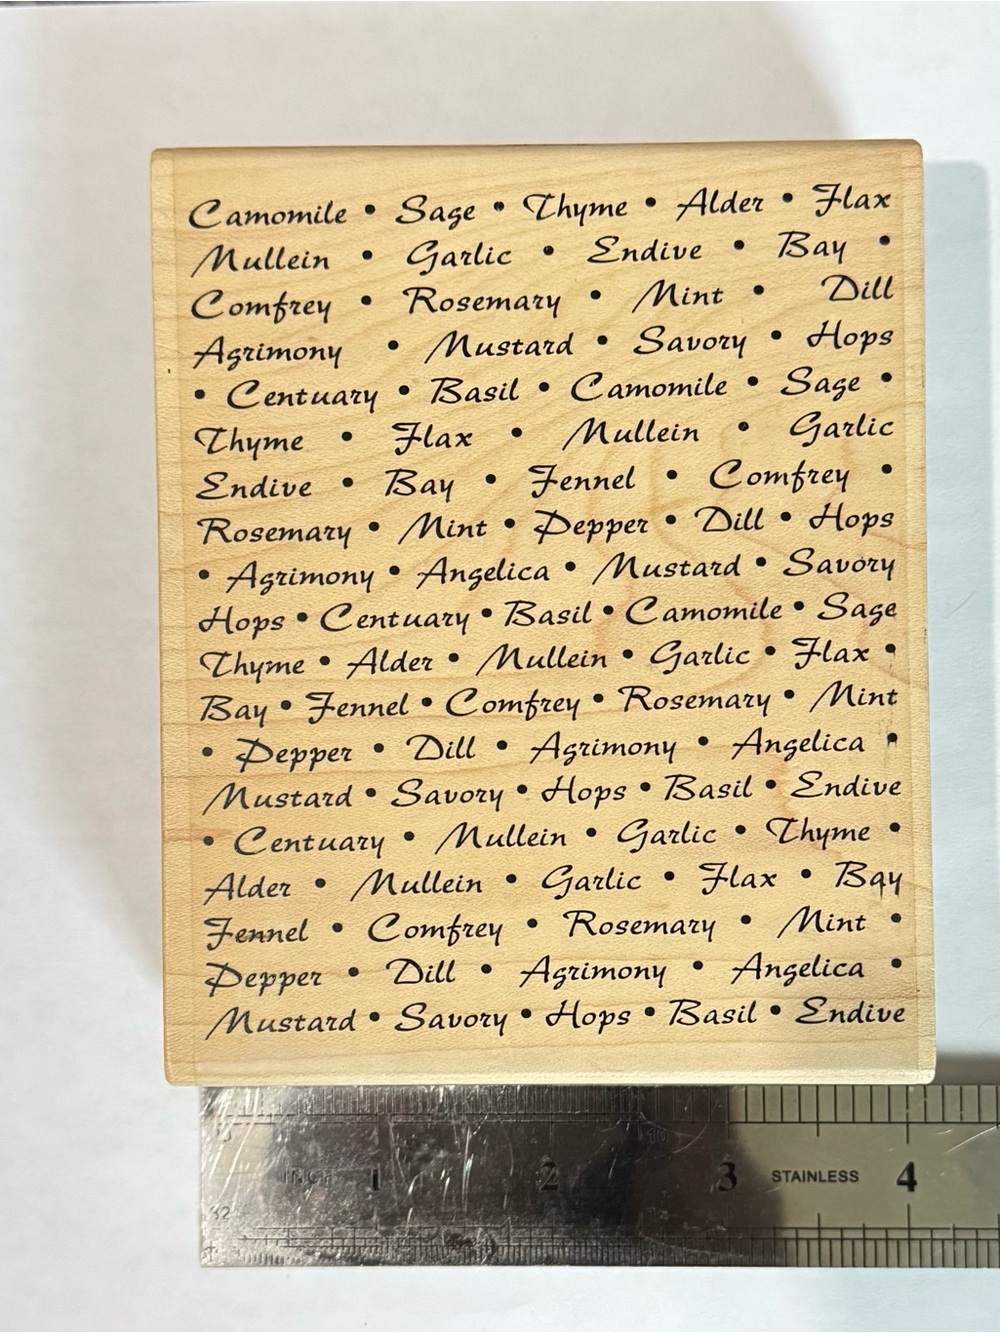 Camomile • Sage • Thyme • Alder • Flax
Mullein • Garlic • Endive • Bay •
Comfrey • Rosemary • Mint • Dill
Agrimony • Mustard • Savory • Hops
• Centuary • Basil • Camomile • Sage •
Thyme • Flax • Mullein • Garlic
Endive • Bay • Fennel • Comfrey •
Rosemary • Mint • Pepper • Dill • Hops
• Agrimony • Angelica • Mustard • Savory
Hops • Centuary • Basil • Camomile • Sage
Thyme • Alder • Mullein • Garlic • Flax •
Bay • Fennel • Comfrey • Rosemary • Mint
• Pepper • Dill • Agrimony • Angelica •
Mustard • Savory • Hops • Basil • Endive
• Centuary • Mullein • Garlic • Thyme •
Alder • Mullein • Garlic • Flax • Bay
Fennel • Comfrey • Rosemary • Mint •
Pepper • Dill • Agrimony • Angelica •
Mustard • Savory • Hops • Basil • Endive
1 2 3 STAINLESS 4
32